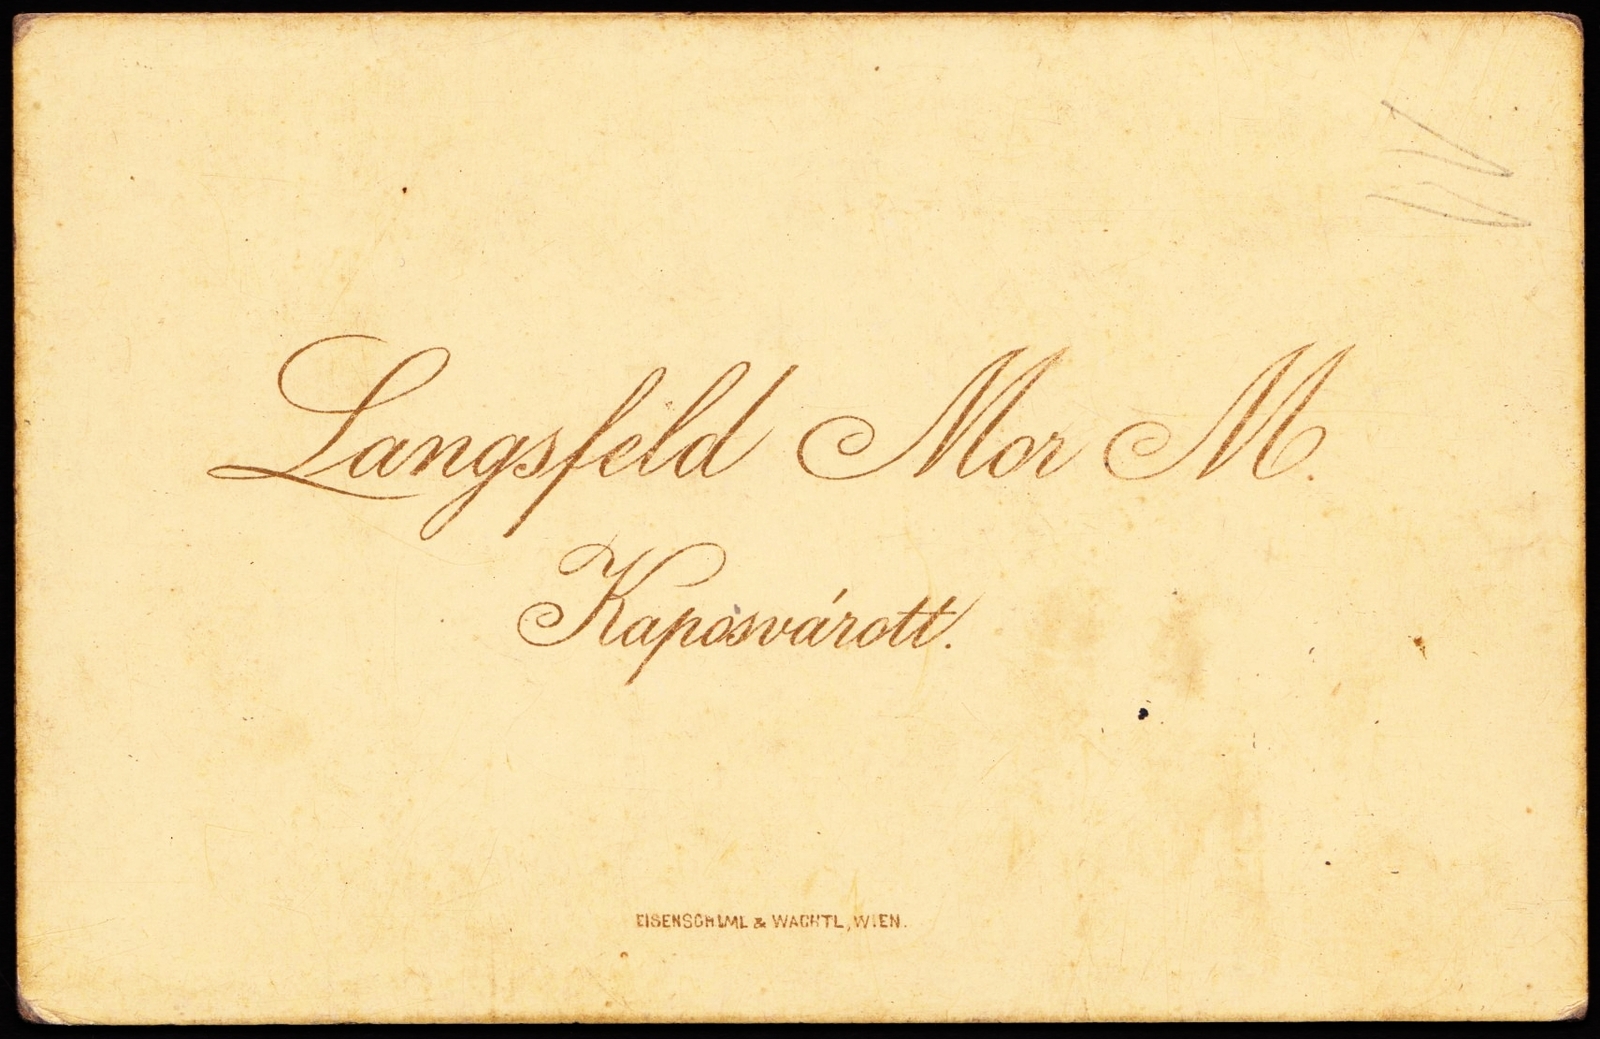 Langsfeld Mor M.
Kaposvárott.
EISENSCHIML & WACHTL, WIEN.